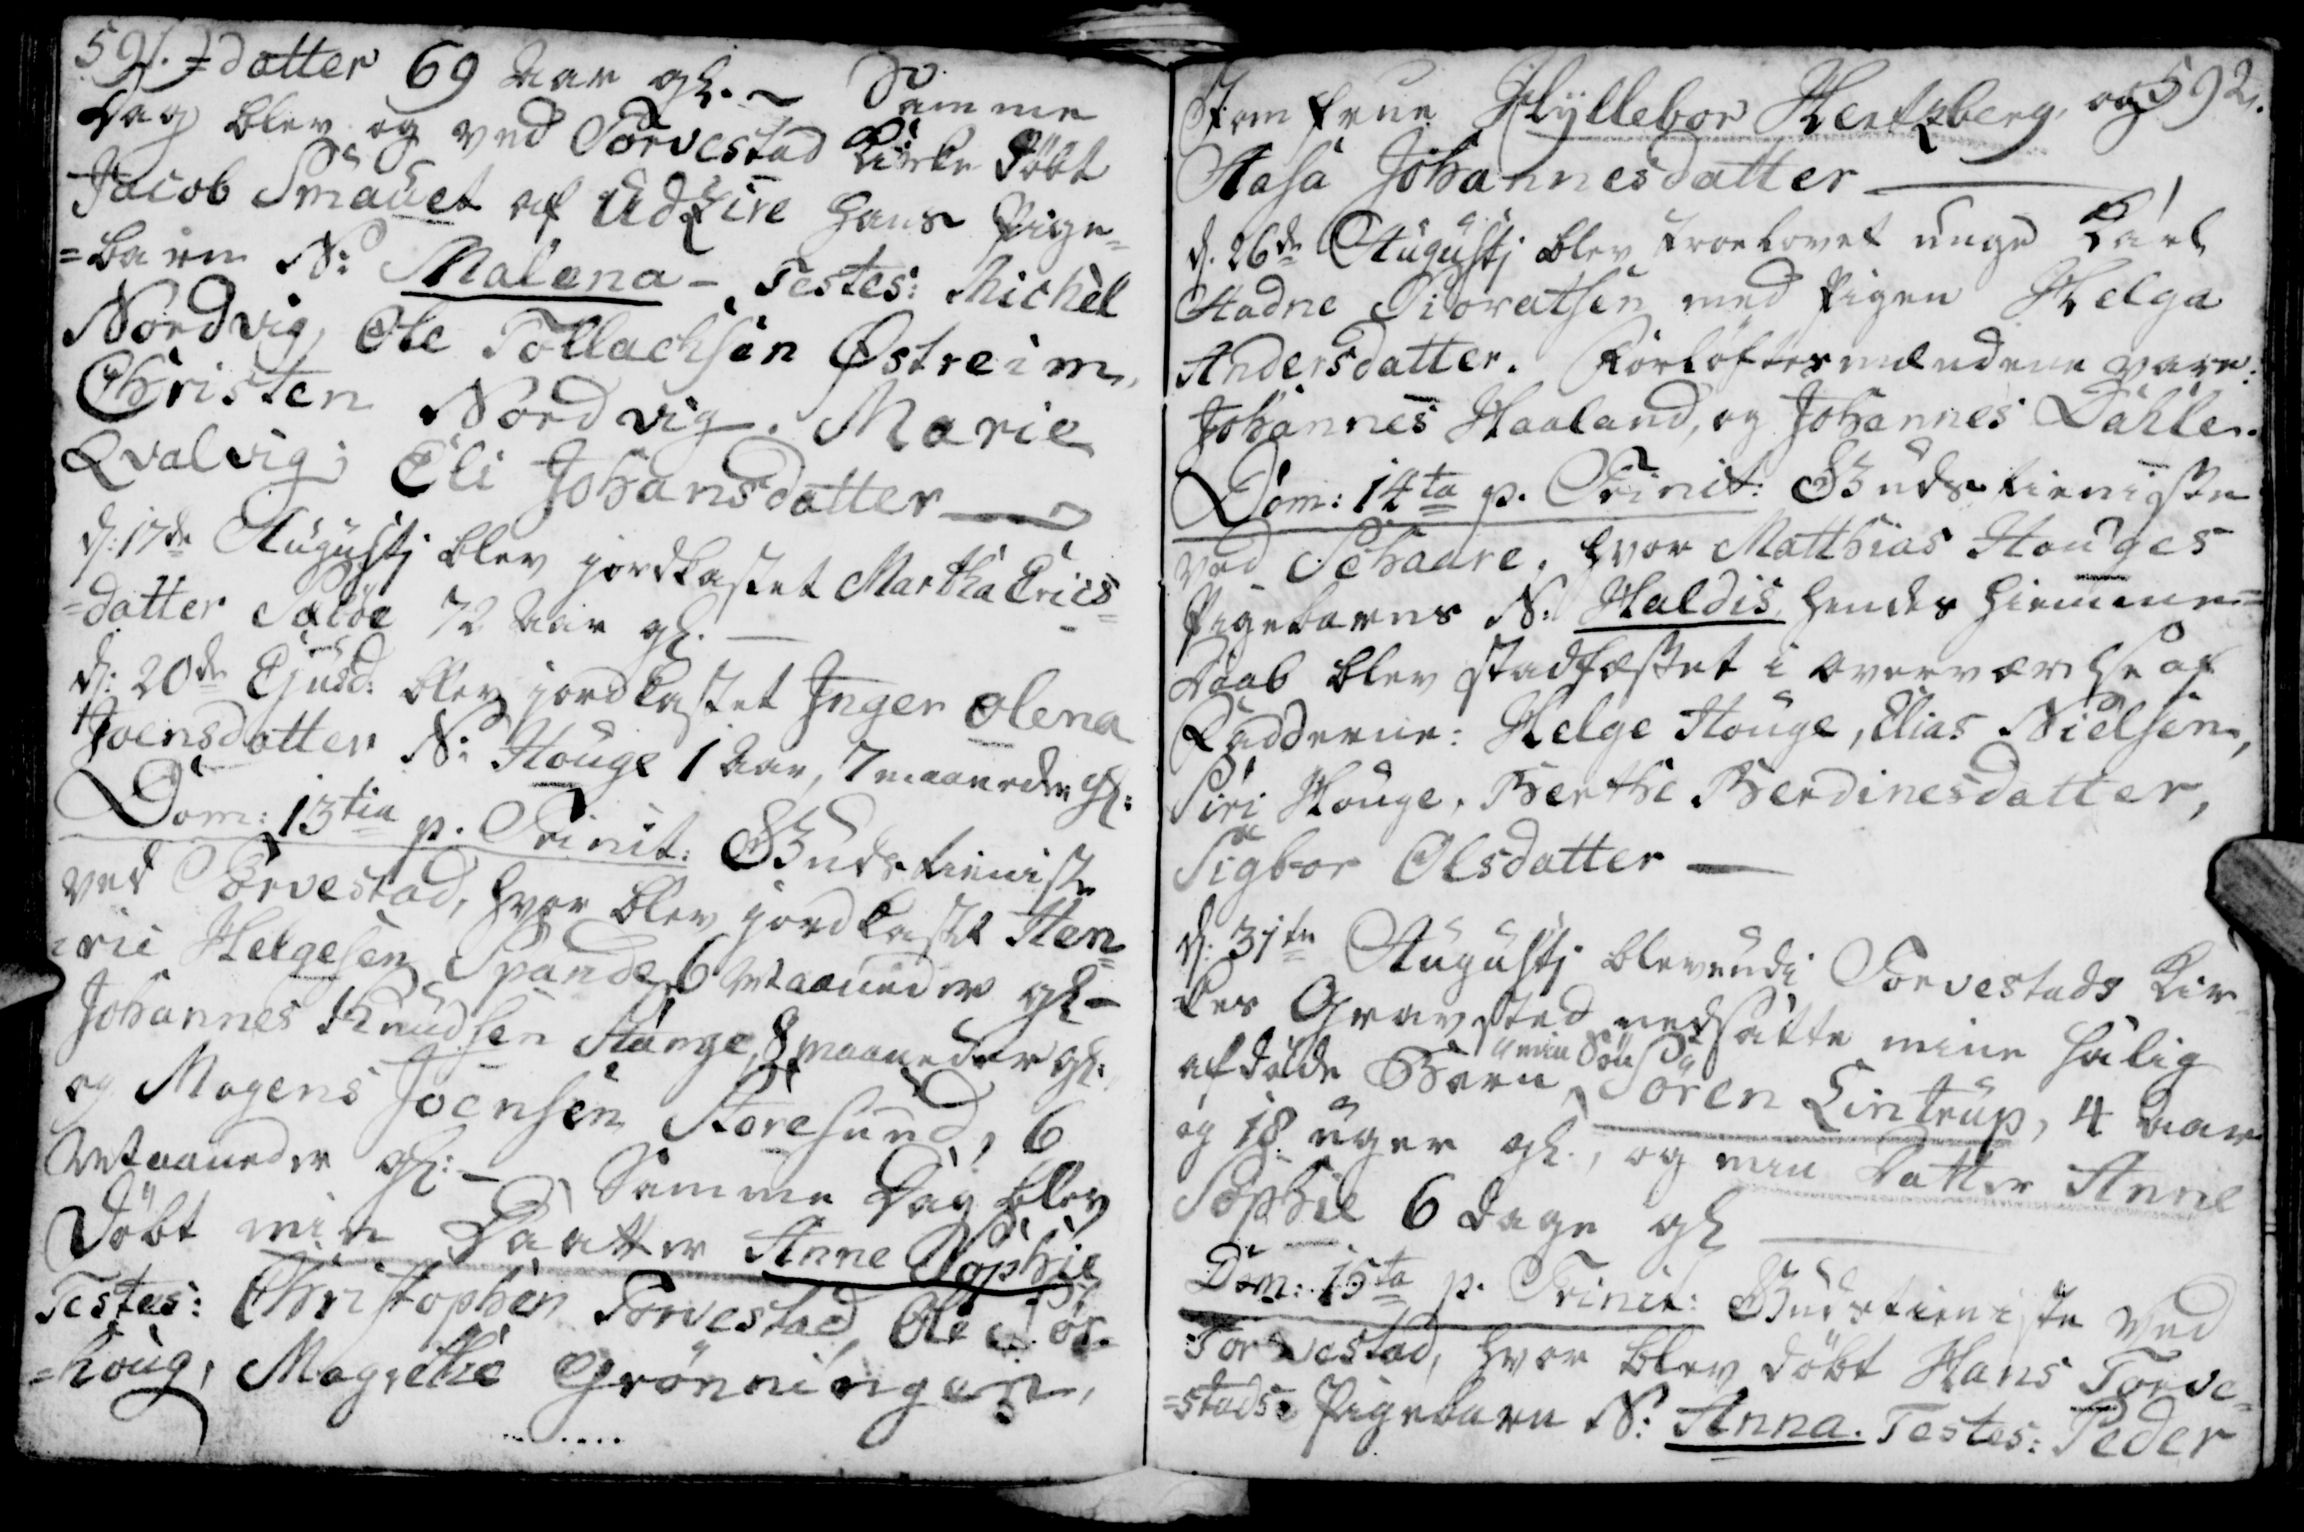 591. =datter 69 Aar gl. ~ Samme
Dag blev og ved Torvestad Kirke döbt
Jacob Smauet af Udzire hans Pige-
=barn N: Malena - Testes: Michel
Nordvig, Ole Tollachsen Østreim,
Christen Nordvig. Marie
Qvalvig; Eli Johansdatter —
d: 17de Augustj blev jordkastet Martha Erics-
=datter 72 Aar gl. —
d: 20de Ejusd: blev jordkastet Inger Olena
Joensdatter N: Houge 1 Aar, 7 maaneder gl:
Dom: 13tia p. Trinit: Gudstieniste
ved Torvestad, hvor blev jordkastet Hen-
=ric Helgesen Spande 6 Maaneder gl -
Johannes Knudsen Stange, 8 maaneder gl:
og Mogens Joensen Storesund, 6
Maaneder gl: - Samme Dag blev
döbt min Daatter Anne Sophie
Testes: Christopher Torvestad, Ole
=houg, Magrethe Grönningen,
Jomfrue Hyllebor Hertzberg, og 592.
Aasa Johannesdatter —
d. 26de Augustj blev troelovet unge Karl
Stadne Sioratsen med Pigen Helga
Andersdatter. Forløftesmændene vare:
Johannes Haaland, og Johannes Dahle.
Dom: 14ta p. Trinit: Gudstienisten
ved Schaare, hvor Matthias Houges
Pigebarns N: Haldis hendes Hiemme=
Daab blev stadfæstet i overværelse af
Fadderne: Helge Houge, Elias Nielsen,
Siri Houge, Berthe Berdinesdatter,
Sigbor Olsdatter —
d: 31te Augustj bleve udi Torvestads Kir-
kes Gravsted nedsatte mine Salig
afdöde Börn, min Sön Sören Lintrup, 4 Aar
og 18 uger gl., og min Datter Anne
Sophie 6 dage gl —
Dom: 15ta p. Trinit: Gudstieniste ved
Torvestad, hvor blev döbt Hans Torve-
=stads Pigebarn N: Anna. Testes: Peder